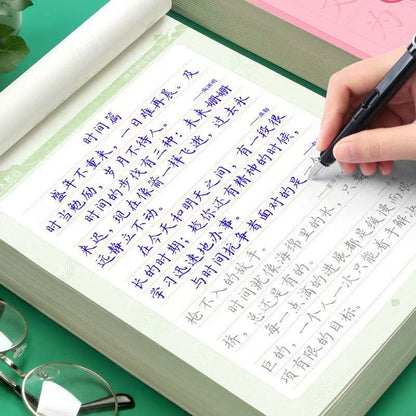 时间篇
盛年不重来，一日难再晨。及
时当勉励，岁月不待人。
时间的步伐有三种：未来姗姗
来迟，现在像箭一样飞逝，过去永
远静立不动。
在今天和明天之间，有一段很
长的时期；趁你还有精神的时候，
学习迅速地办事。
与时间抗争者面对的是一
抢不入的敌手。
时间就像海绵里的水，只
挤，总还是有的。
每一点滴的进展都是缓慢而
巨的，一个人一次只能着手解
项有限的目标。